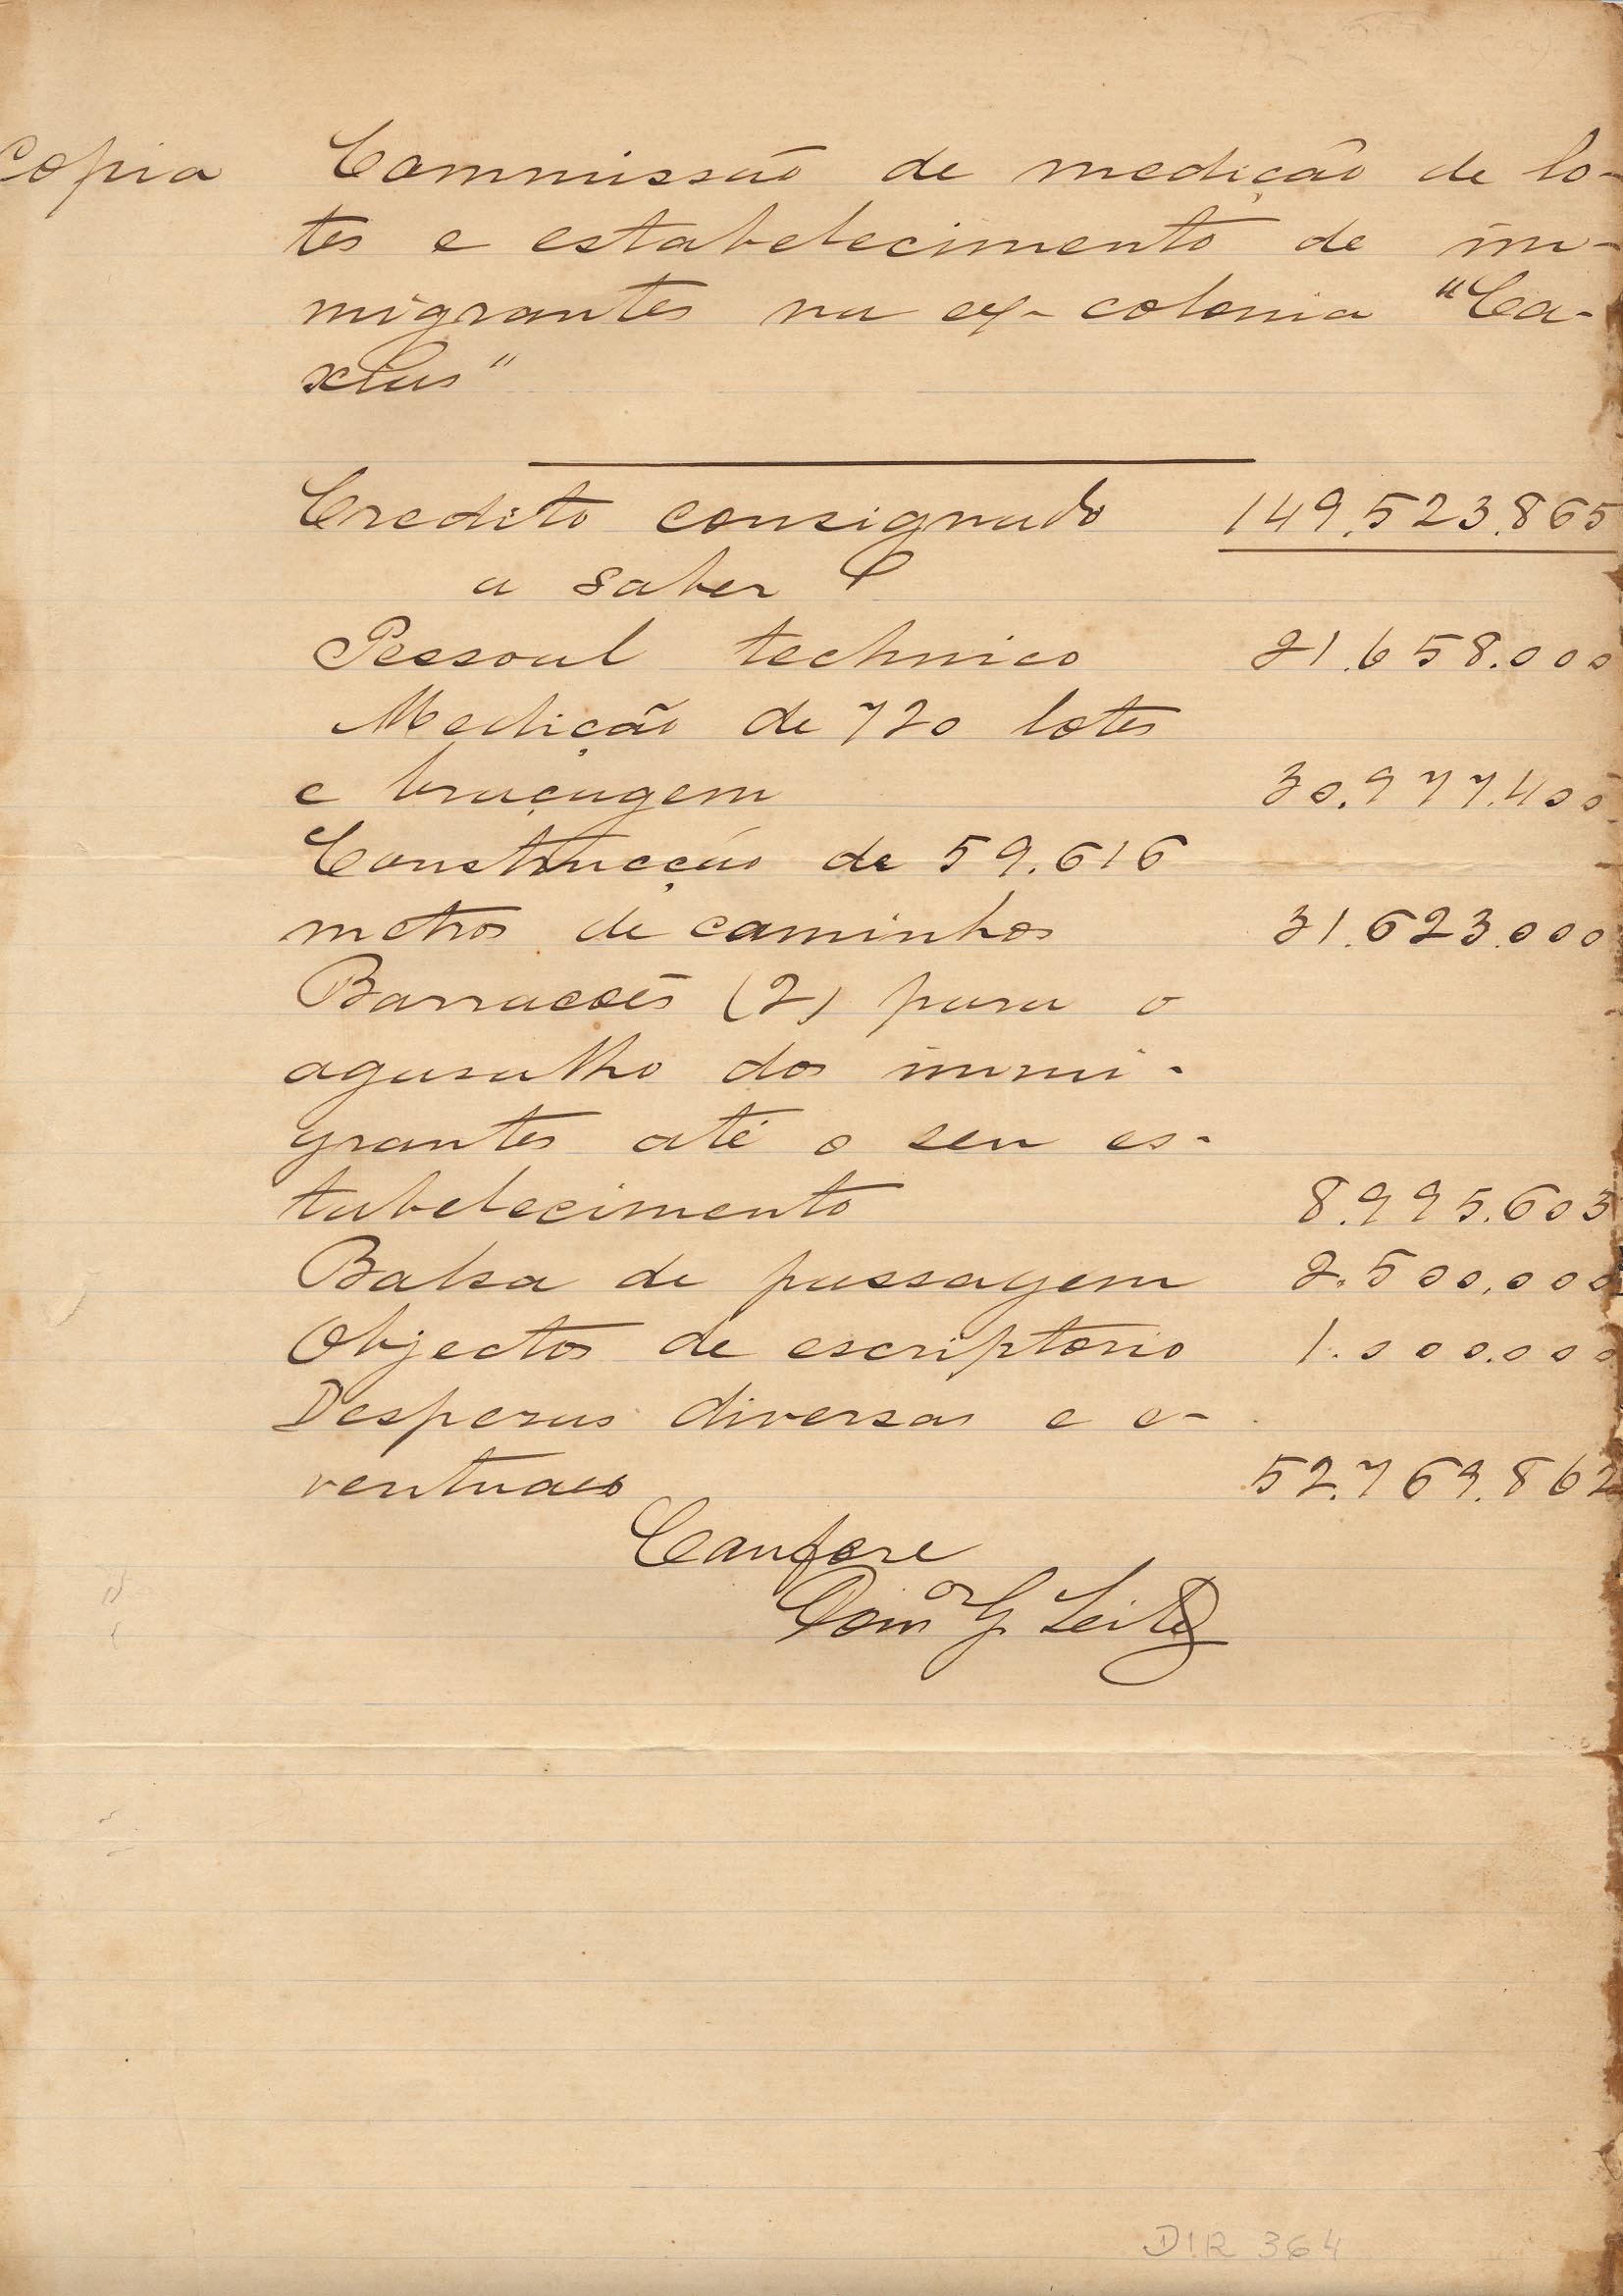 Copia Commissão de medição de lo-
tes e estabelecimento de im-
migrantes na ex-colonia "Ca-
xias"
Credito consignado 149.523.865
a saber
Pessoal technico 21.658.000
Medição de 720 lotes
e braçagem 30.977.400
Construcção de 59.616
metros de caminhos 31.623.000
Barracões (2) para o
agasalho dos immi-
grantes até o seu es-
tabelecimento 8.995.603
Balsa de passagem 2.500.000
Objectos de escriptorio 1.000.000
Despezas diversas e e-
ventuaes 52.769.862
Confere
Dom.os G. Leite
DIR 364